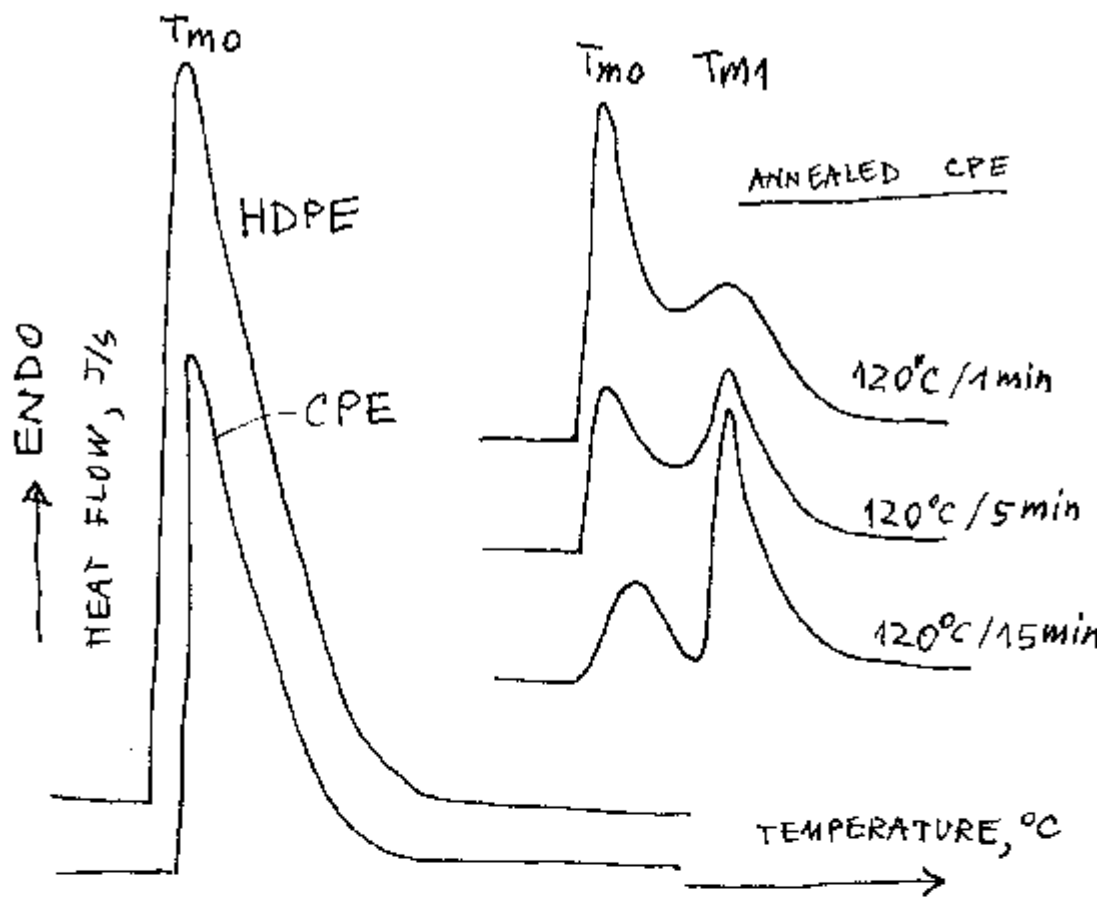 Tmo
HDPE
CPE
→ ENDO
HEAT FLOW, J/s
Tmo
TM1
ANNEALED CPE
120°C/1min
120°C/5min
120°C/15min
TEMPERATURE, °C